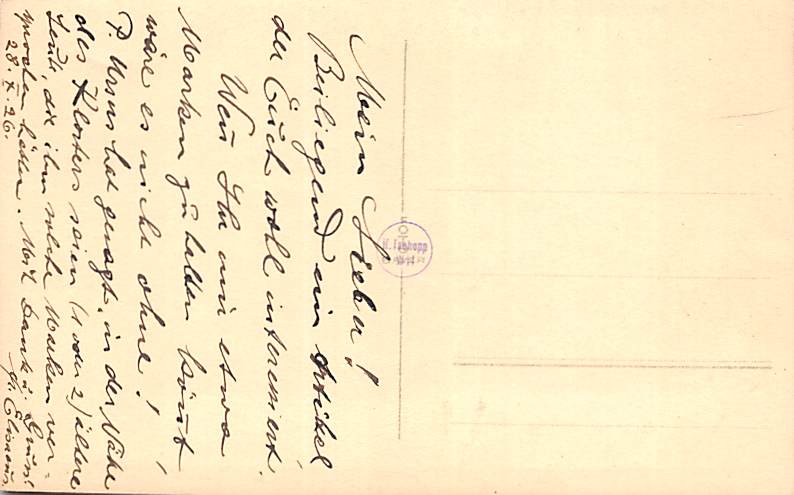 Mein Lieber!
Beiliegend ein Artikel
der Euch wohl interessiert.
Wen Ihr mir etwa
Marken zu halten könnt,
wäre es nicht ohne!
P. Ursus hat gesagt, in der Nähe
des Klosters seien (1 oder 2) ältere
Leute, die ihm solche Marken ver-
sprochen hätten. Mit Dank u. Gruss
28. X. 26.